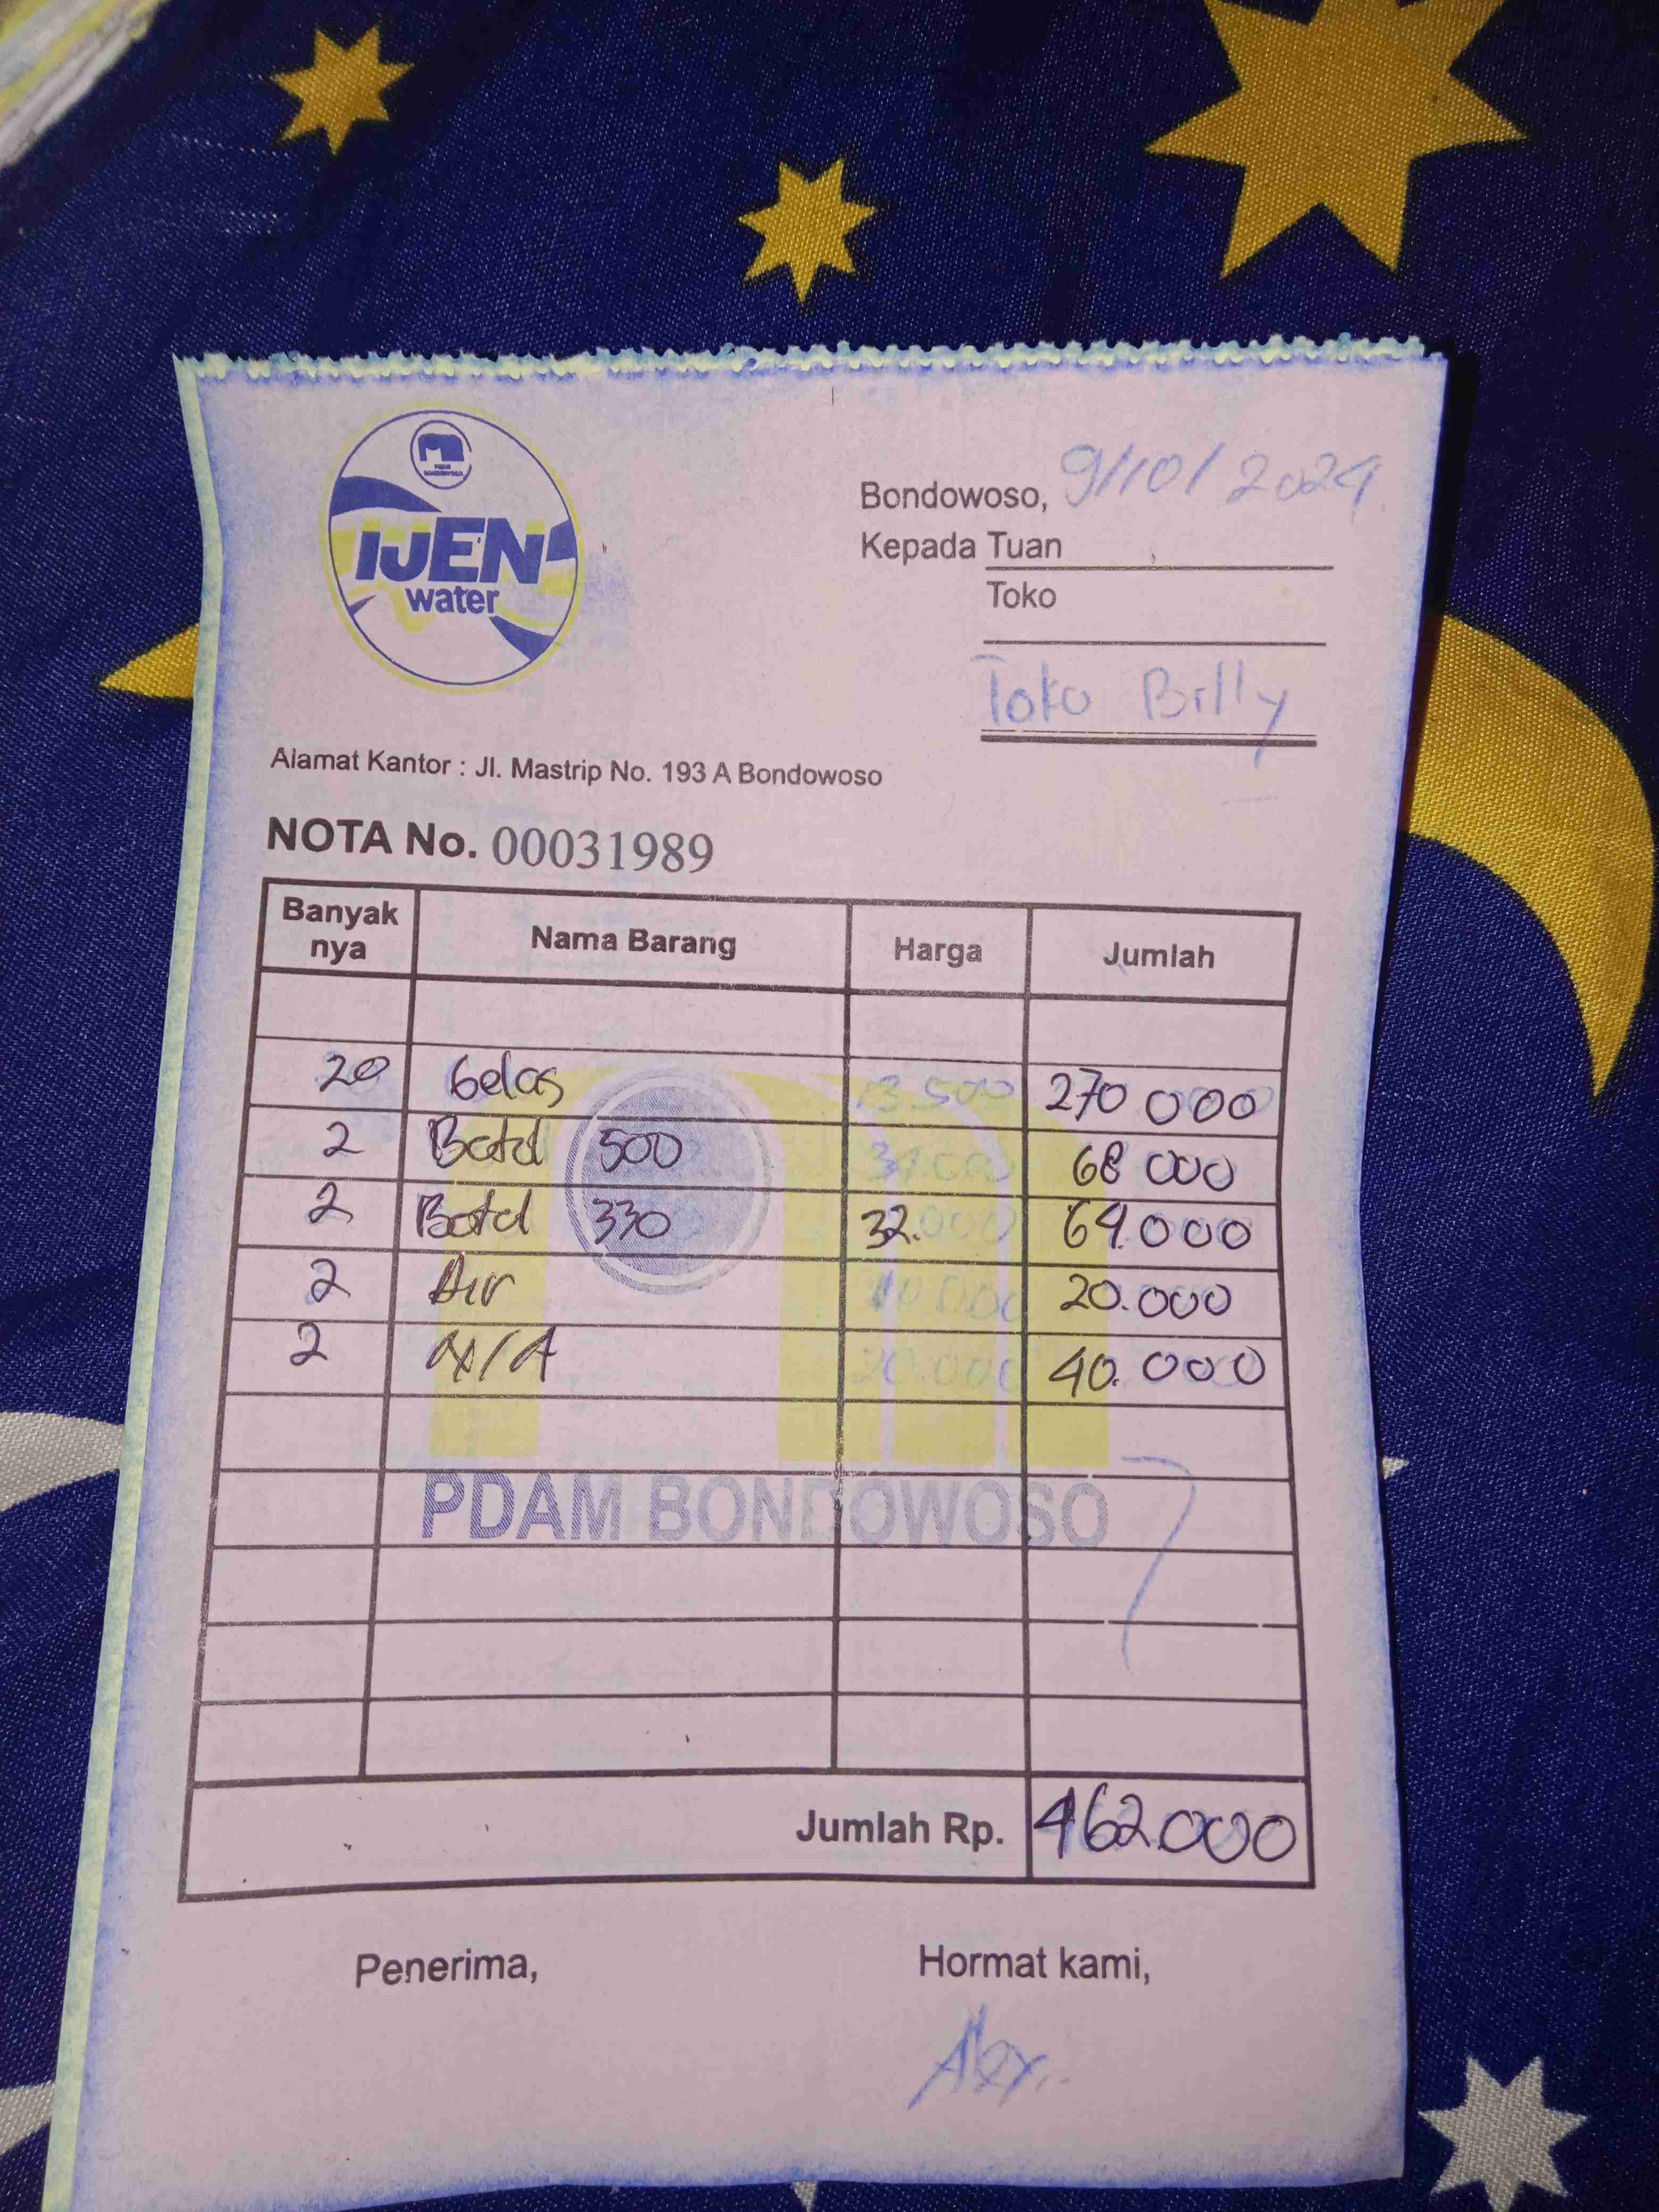 PDAM
BONDOWOSO
IJEN
water
Bondowoso, 9/10/2024
Kepada Tuan
Toko
Toko Billy
Alamat Kantor : Jl. Mastrip No. 193 A Bondowoso
NOTA No. 00031989
Banyak nya Nama Barang Harga Jumlah
20 Gelas 13.500 270 000
2 Botol 500 34.000 68 000
2 Botol 330 32.000 64.000
2 Air 10.000 20.000
2 20.000 40.000
PDAM BONDOWOSO
Jumlah Rp. 462.000
Penerima, Hormat kami,
Alex..